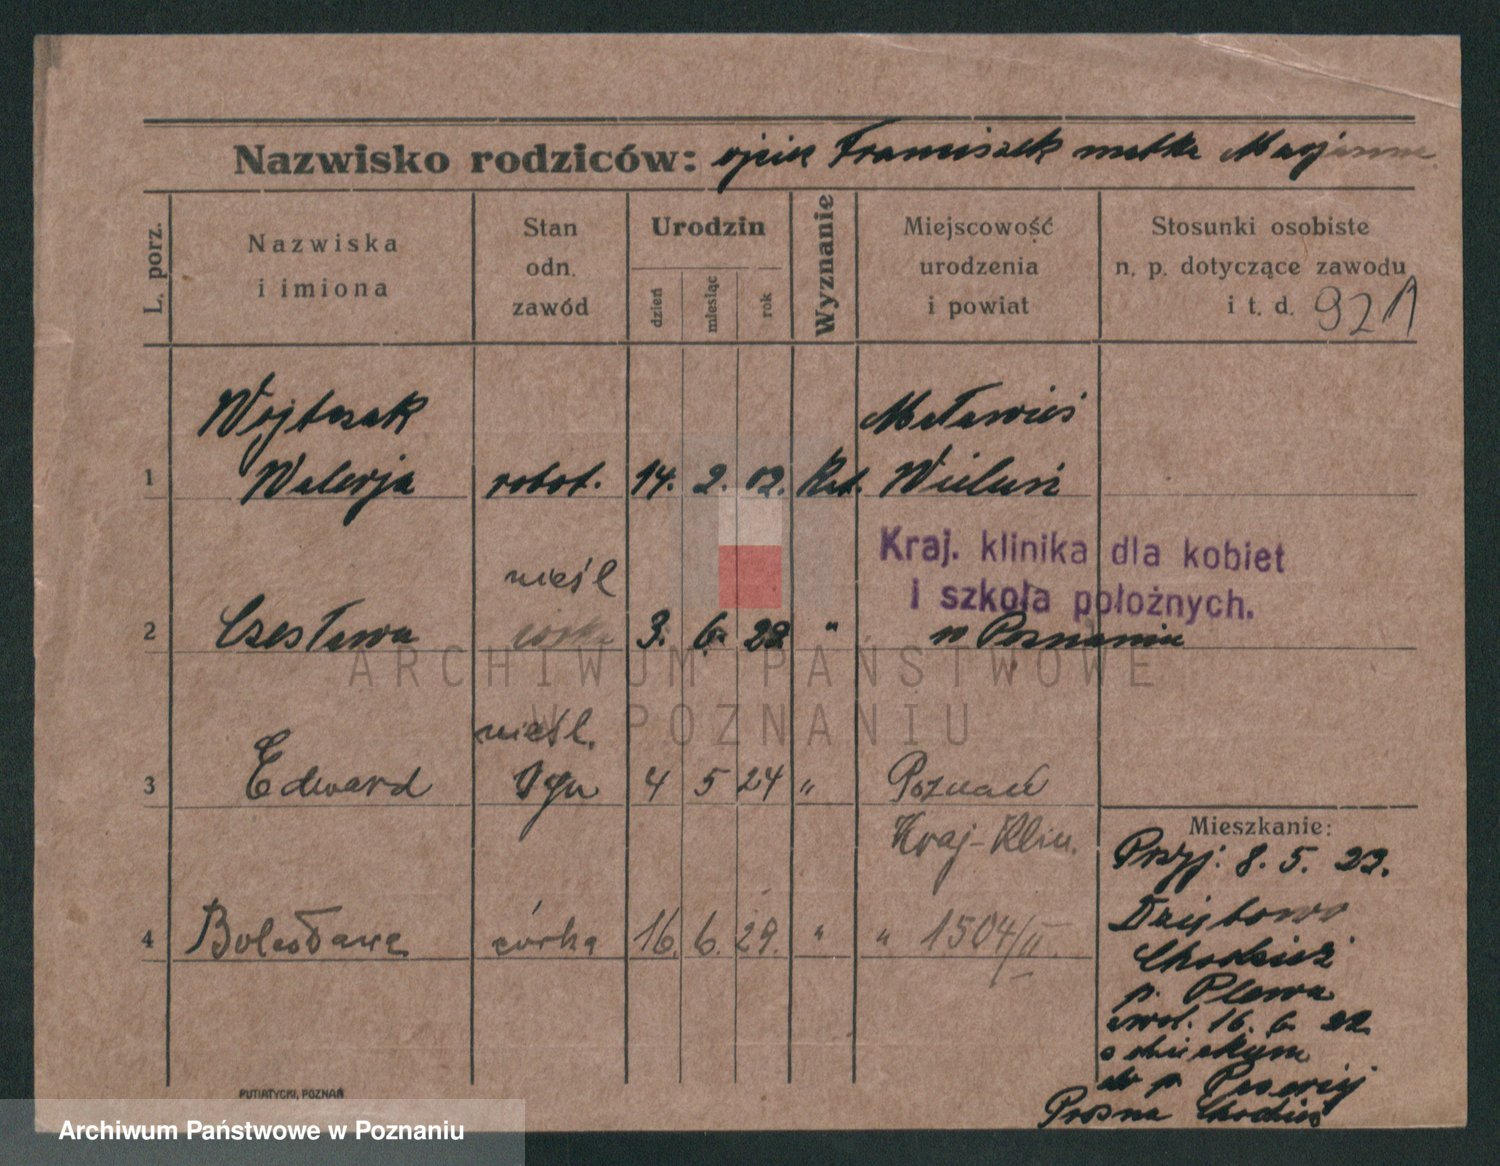 Nazwisko rodziców: ojciec Franciszek matka Marjanna
L. porz.
Nazwiska
i imiona
Stan
odn.
zawód
Urodzin
dzień
miesiąc
rok
Wyznanie
Miejscowość
urodzenia
i powiat
Stosunki osobiste
n. p. dotyczące zawodu
i t. d. 921
Wojtczak
Maławieś
1 Walerja robot. 14. 2. 02. Kat. Wieluń
Kraj. klinika dla kobiet
i szkoła położnych.
nieśl
2 Czesława córka 3. 6. 22 " w Poznaniu
ARCHIWUM PAŃSTWOWE
W POZNANIU
nieśl.
3 Edward syn 4 5 24 " Poznań
Kraj-Klin.
4 Bolesława córka 16. 6. 29. " " 1504/II.
Mieszkanie:
Przyj. 8. 5. 22.
Dziębowo
Chodzież
p. Plewa
zwol. 16. 6. 22
z dzieckiem
do p.
Prosna Chodzież
PUTIATYCKI, POZNAŃ
Archiwum Państwowe w Poznaniu